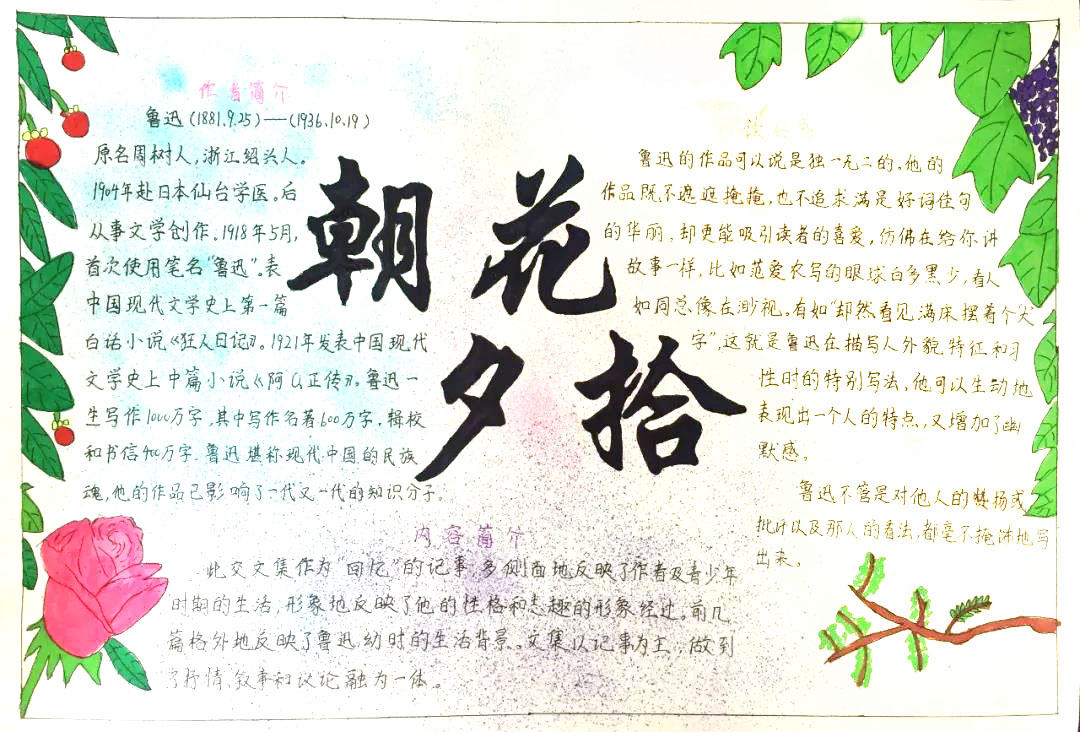 作者简介
鲁迅(1881.9.25)——(1936.10.19)
原名周树人,浙江绍兴人。
1904年赴日本仙台学医。后
从事文学创作。1918年5月,
首次使用笔名"鲁迅"。表
中国现代文学史上第一篇
白话小说《狂人日记》。1921年发表中国现代
文学史上中篇小说《阿Q正传》。鲁迅一
生写作1000万字,其中写作名著600万字,辑校
和书信400万字.鲁迅堪称现代中国的民族
魂,他的作品已影响了一代又一代的知识分子。
朝花
夕拾
鲁迅的作品可以说是独一无二的。他的
作品既不遮遮掩掩,也不追求满是好词佳句
的华丽,却更能吸引读者的喜爱,仿佛在给你讲
故事一样,比如范爱农写的眼球白多黑少,看人
如同总像在渺视。有如"却然看见满床摆着个'大'
字",这就是鲁迅在描写人外貌特征和习
性时的特别写法,他可以生动地
表现出一个人的特点,又增加了幽
默感。
鲁迅不管是对他人的赞扬或
批评以及那人的看法,都毫不掩饰地写
出来。
内容简介
此交文集作为"回忆"的记事,多侧面地反映了作者及青少年
时期的生活,形象地反映了他的性格和志趣的形象经过。前几
篇格外地反映了鲁迅幼时的生活背景。文集以记事为主,做到
了抒情、叙事和议论融为一体。